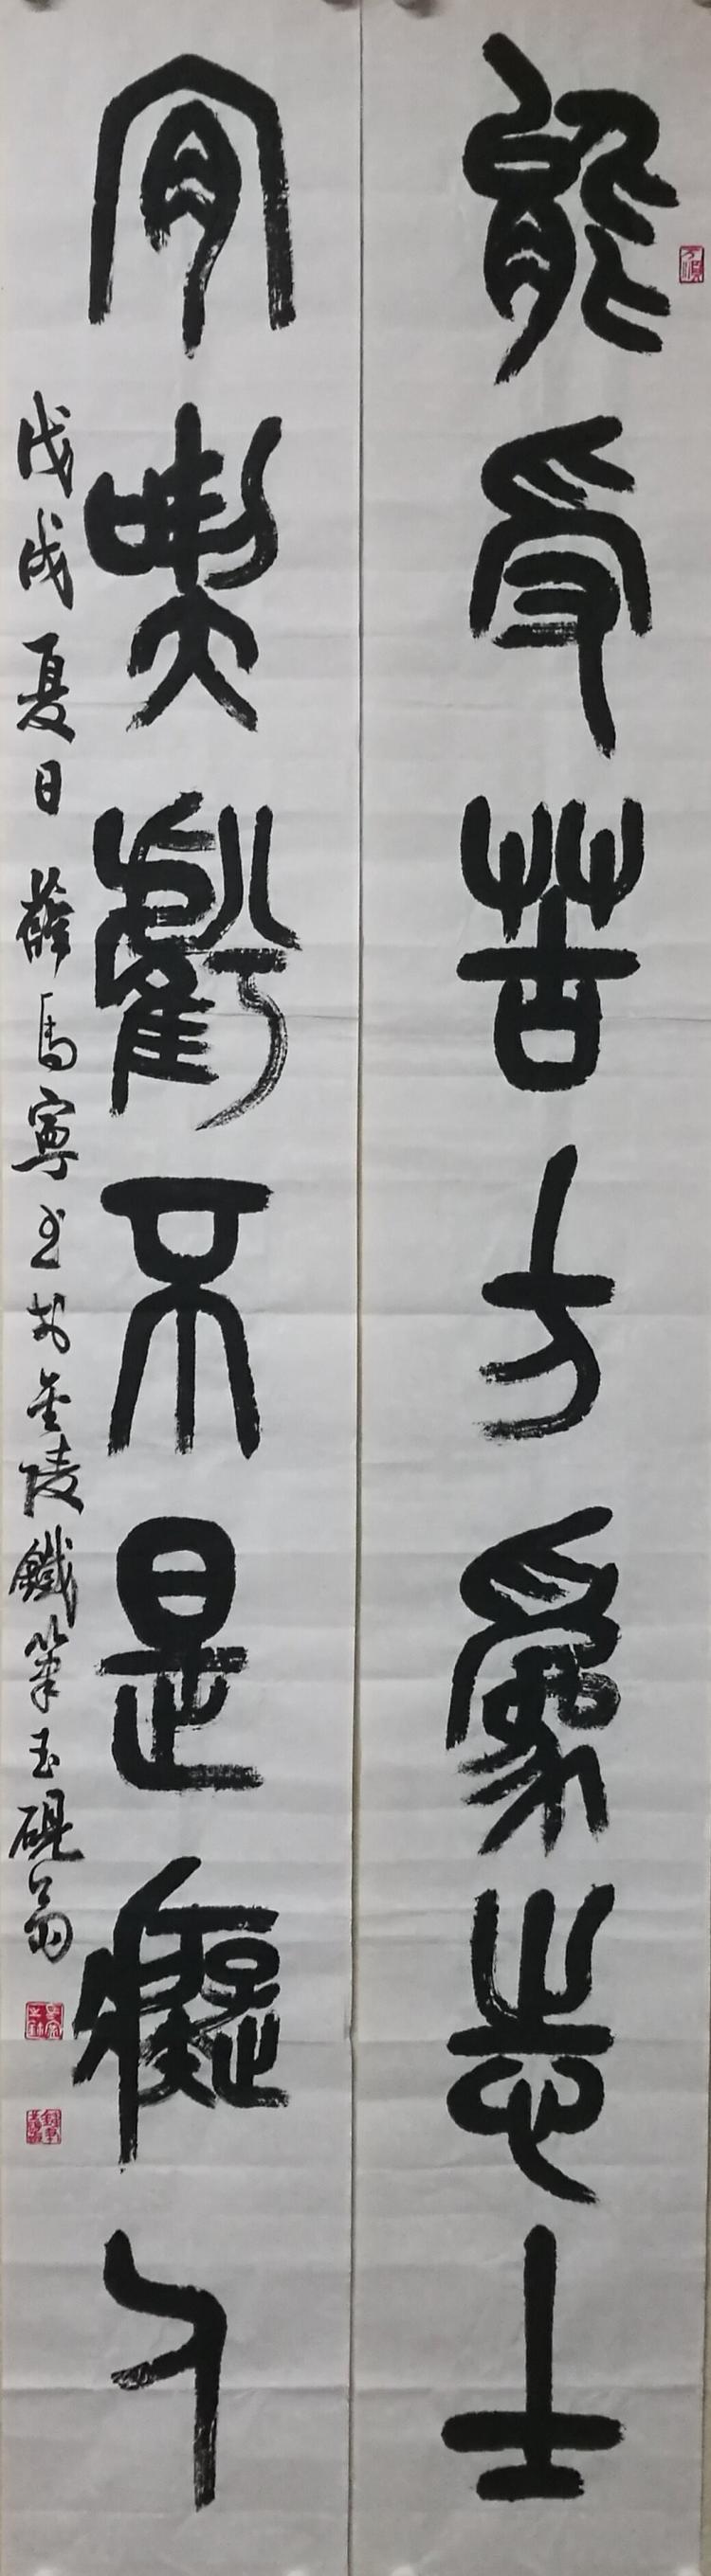 能受苦方為志士
肯喫虧不是癡人
戊戌夏日薛馬寧书於金陵鐵筆玉硯翁